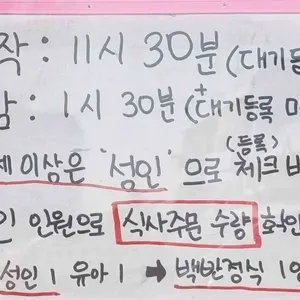 작 : 11시 30분 (대기등
감 : 1시 30분 (대기등록 미
+
(등록)
세 이상은 "성인"으로 체크 바
인 인원으로 식사주문 수량 확인
성인 1 유아 1 → 백반정식 1인